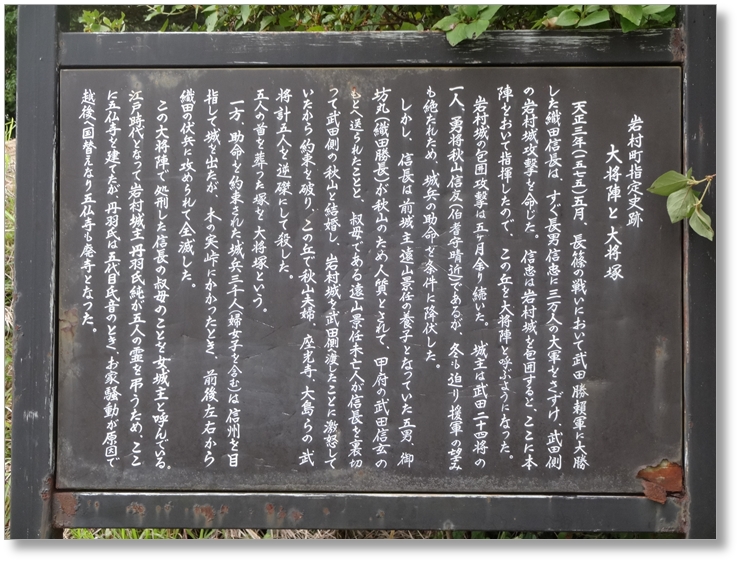 岩村町指定史跡
大将陣と大将塚
天正三年(一五七五)五月、長篠の戦いにおいて武田勝頼軍に大勝
した織田信長は、すぐ長男信忠に三万人の大軍をさずけ、武田側
の岩村城攻撃を命じた。信忠は岩村城を包囲すると、ここに本
陣をおいて指揮したので、この丘を大将陣と呼ぶようになった。
岩村城の包囲攻撃は五ヶ月余り続いた。城主は武田二十四将の
一人、勇将秋山信友(伯耆守晴近)であるが、冬も迫り援軍の望み
も絶たれたため、城兵の助命を条件に降伏した。
しかし、信長は前城主遠山景任の養子となっていた五男、御
坊丸(織田勝長)が秋山のため人質とされて、甲府の武田信玄の
もとへ送られたことと、叔母である遠山景任未亡人が信長を裏切
って武田側の秋山と結婚し、岩村城を武田側渡したことに激怒して
いたから約束を破り、この丘で秋山夫婦、座光寺、大島らの武
将計五人を逆磔にして殺した。
五人の首を葬った塚を大将塚という。
一方、助命を約束された城兵三千人(婦女子を含む)は信州を目
指して城を出たが、木の実峠にかかったとき、前後左右から
織田の伏兵に攻められて全滅した。
この大将陣で処刑した信長の叔母のことを女城主と呼んでいる。
江戸時代となって岩村城主丹羽氏純が五人の霊を弔うため、ここ
に五仏寺を建てたが、丹羽氏は五代目氏音のとき、お家騒動が原因で
越後へ国替えなり五仏寺も廃寺となった。